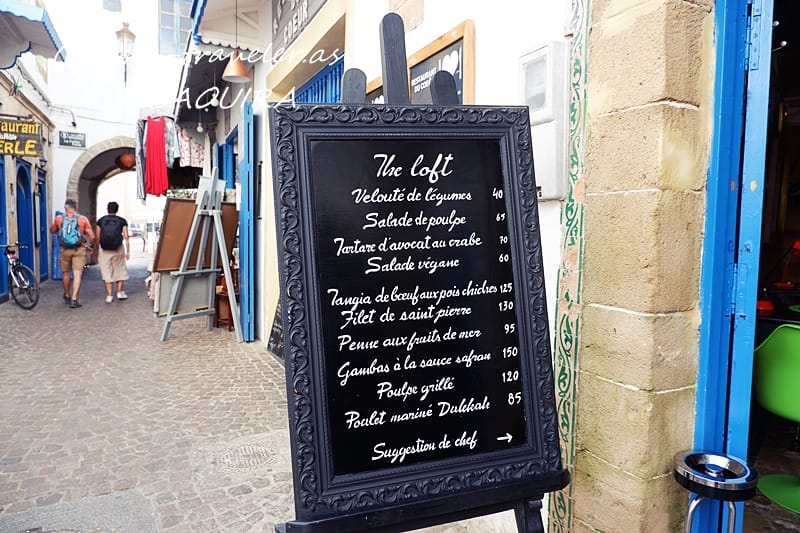 traveler.as
AQUIRA
COEUR
RESTAURANT
DU COEUR
Restaurant
ERLE
The loft
Velouté de légumes 40
Salade de poulpe 65
Tartare d'avocat au crabe 70
Salade végane 60
Tangia de bœuf aux pois chiches 125
Filet de saint pierre 130
Penne aux fruits de mer 95
Gambas à la sauce safran 150
Poulpe grillé 120
Poulet mariné Dukkah 85
Suggestion de chef →